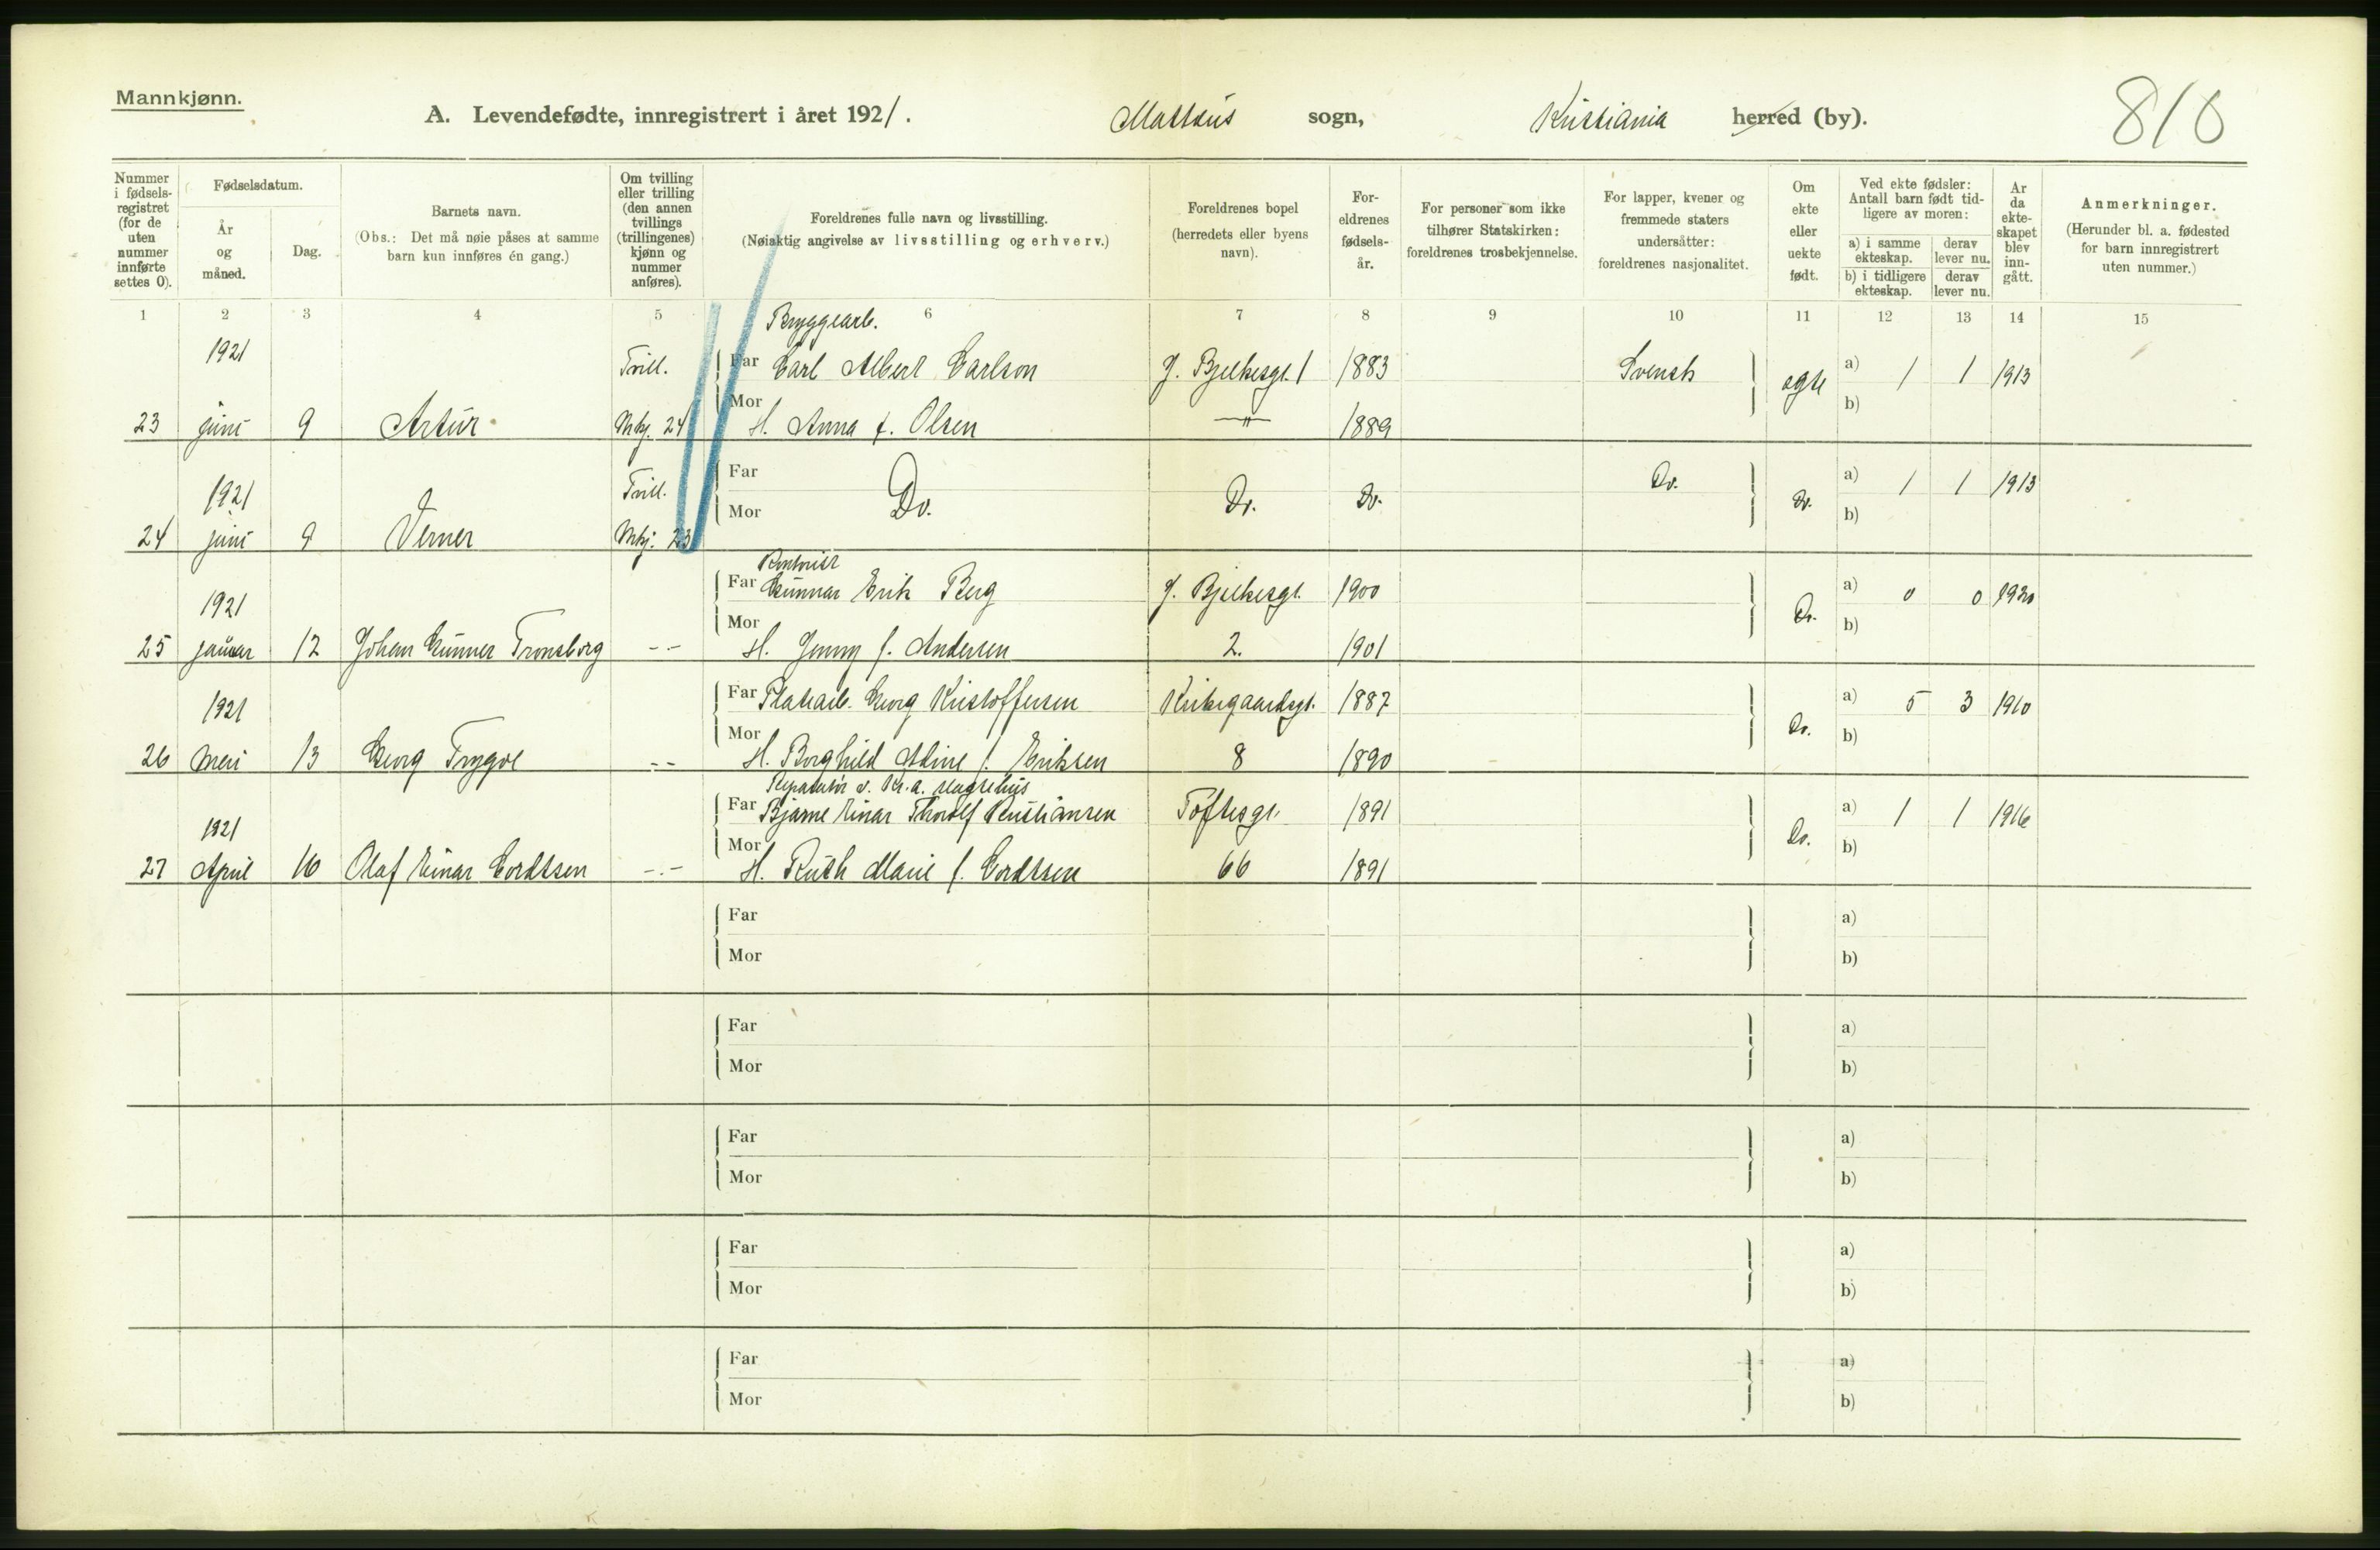 Mannkjønn.
A. Levendefødte, innregistrert i året 1921. Mattæus sogn, Kristiania herred (by). 810
Nummer i fødselsregistret (for de uten nummer innførte settes 0).
Fødselsdatum.
År og måned.
Dag.
Barnets navn.
(Obs.: Det må nøie påses at samme barn kun innføres én gang.)
Om tvilling eller trilling (den annen tvillings (trillingenes) kjønn og nummer anføres).
Foreldrenes fulle navn og livsstilling.
(Nøiaktig angivelse av livsstilling og erhverv.)
Foreldrenes bopel (herredets eller byens navn).
Foreldrenes fødselsår.
For personer som ikke tilhører Statskirken: foreldrenes trosbekjennelse.
For lapper, kvener og fremmede staters undersåtter: foreldrenes nasjonalitet.
Om ekte eller uekte født.
Ved ekte fødsler: Antall barn født tidligere av moren:
a) i samme ekteskap. derav lever nu.
b) i tidligere ekteskap. derav lever nu.
Ar da ekteskapet blev inngått.
Anmerkninger.
(Herunder bl. a. fødested for barn innregistrert uten nummer.)
1 2 3 4 5 6 7 8 9 10 11 12 13 14 15
Bryggearb.
1921 Tvill. Far Carl Albert Carlson J. Bjelkesgt. 1 1883 Svensk ogte a) 1 1 1913
23 juni 9 Artur Mkj. 24 Mor H. Anna f. Olsen —"— 1889 b)
1921 Tvill. Far Do. Do. Do. Do. Do. a) 1 1 1913
24 juni 9 Verner Mkj. 23 Mor b)
Kontorist
1921 Far Gunnar Erik Berg J. Bjelkesgt. 1900 Do. a) 0 0 1920
25 januar 12 Johan Gunner Tronsborg -- Mor H. Jenny f. Andersen 2. 1901 b)
1921 Far Georg Kristoffersen Kirkegaardsgt. 1887 Do. a) 5 3 1910
26 Mai 13 Georg Trygve -- Mor H. Borghild Adine f. Eriksen 8 1890 b)
Reparatør v. Kr.a.
1921 Far Bjarne Einar Thorolf Kristiansen Toftesgt. 1891 Do. a) 1 1 1916
27 April 16 Olaf Einar Cordtsen -.- Mor H. Ruth Marie f. Cordtsen 66 1891 b)
Far a)
Mor b)
Far a)
Mor b)
Far a)
Mor b)
Far a)
Mor b)
Far a)
Mor b)